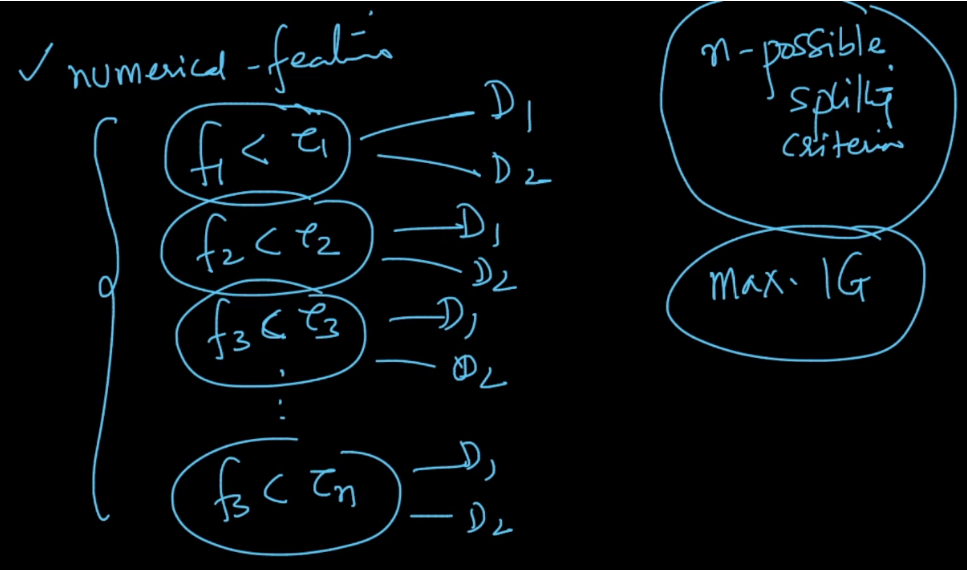 ✓ numerical-features
f₁ < τ₁
D₁
D₂
f₂ < τ₂
D₁
D₂
f₃ < τ₃
D₁
D₂
⋮
f₃ < τₙ
D₁
D₂
n-possible
splitting
criterion
max. IG